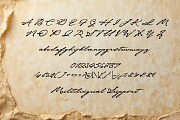 ABCDEFGHIJKLM
NOPQRSTUVWXYZ
abcdefghijklmnopqrstuvwxyz
0123456789
Multilingual Support